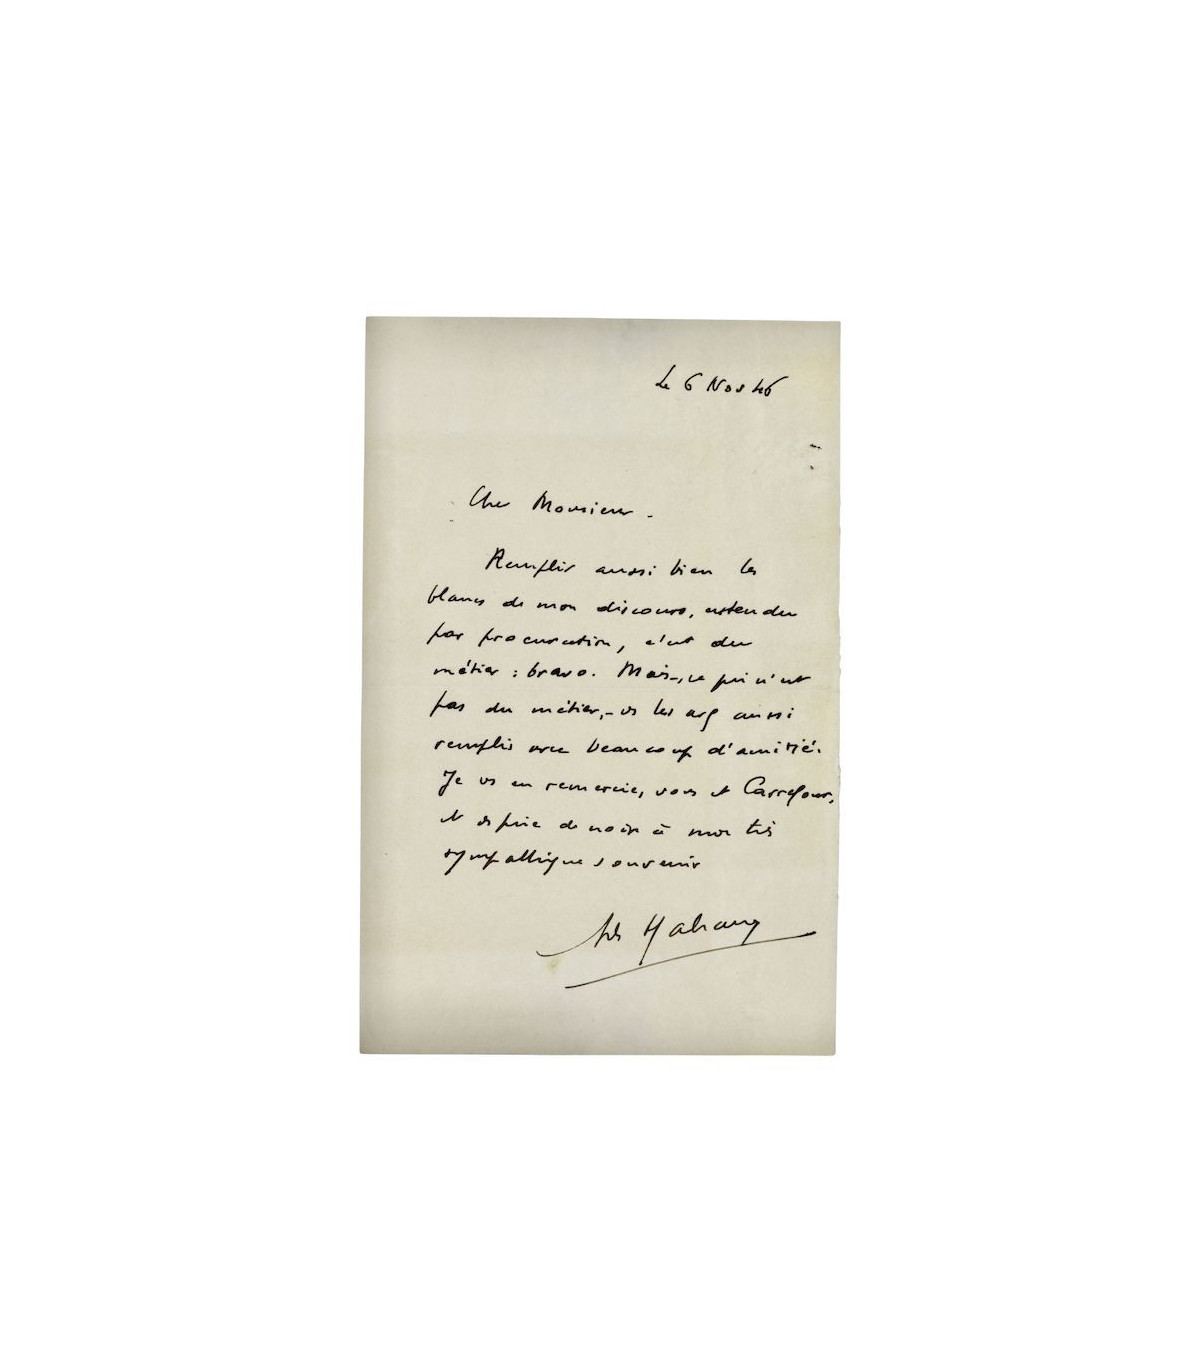 Le 6 Nov 46
Cher Monsieur -
Remplir aussi bien les
blancs de mon discours, entendu
par procuration, c'est du
métier : bravo. Mais -, ce qui n'est
pas du métier, - vs les avez aussi
remplis avec beaucoup d'amitié.
Je vs en remercie, vous et Carrefour,
et vs prie de croire à mon très
sympathique souvenir
Malraux